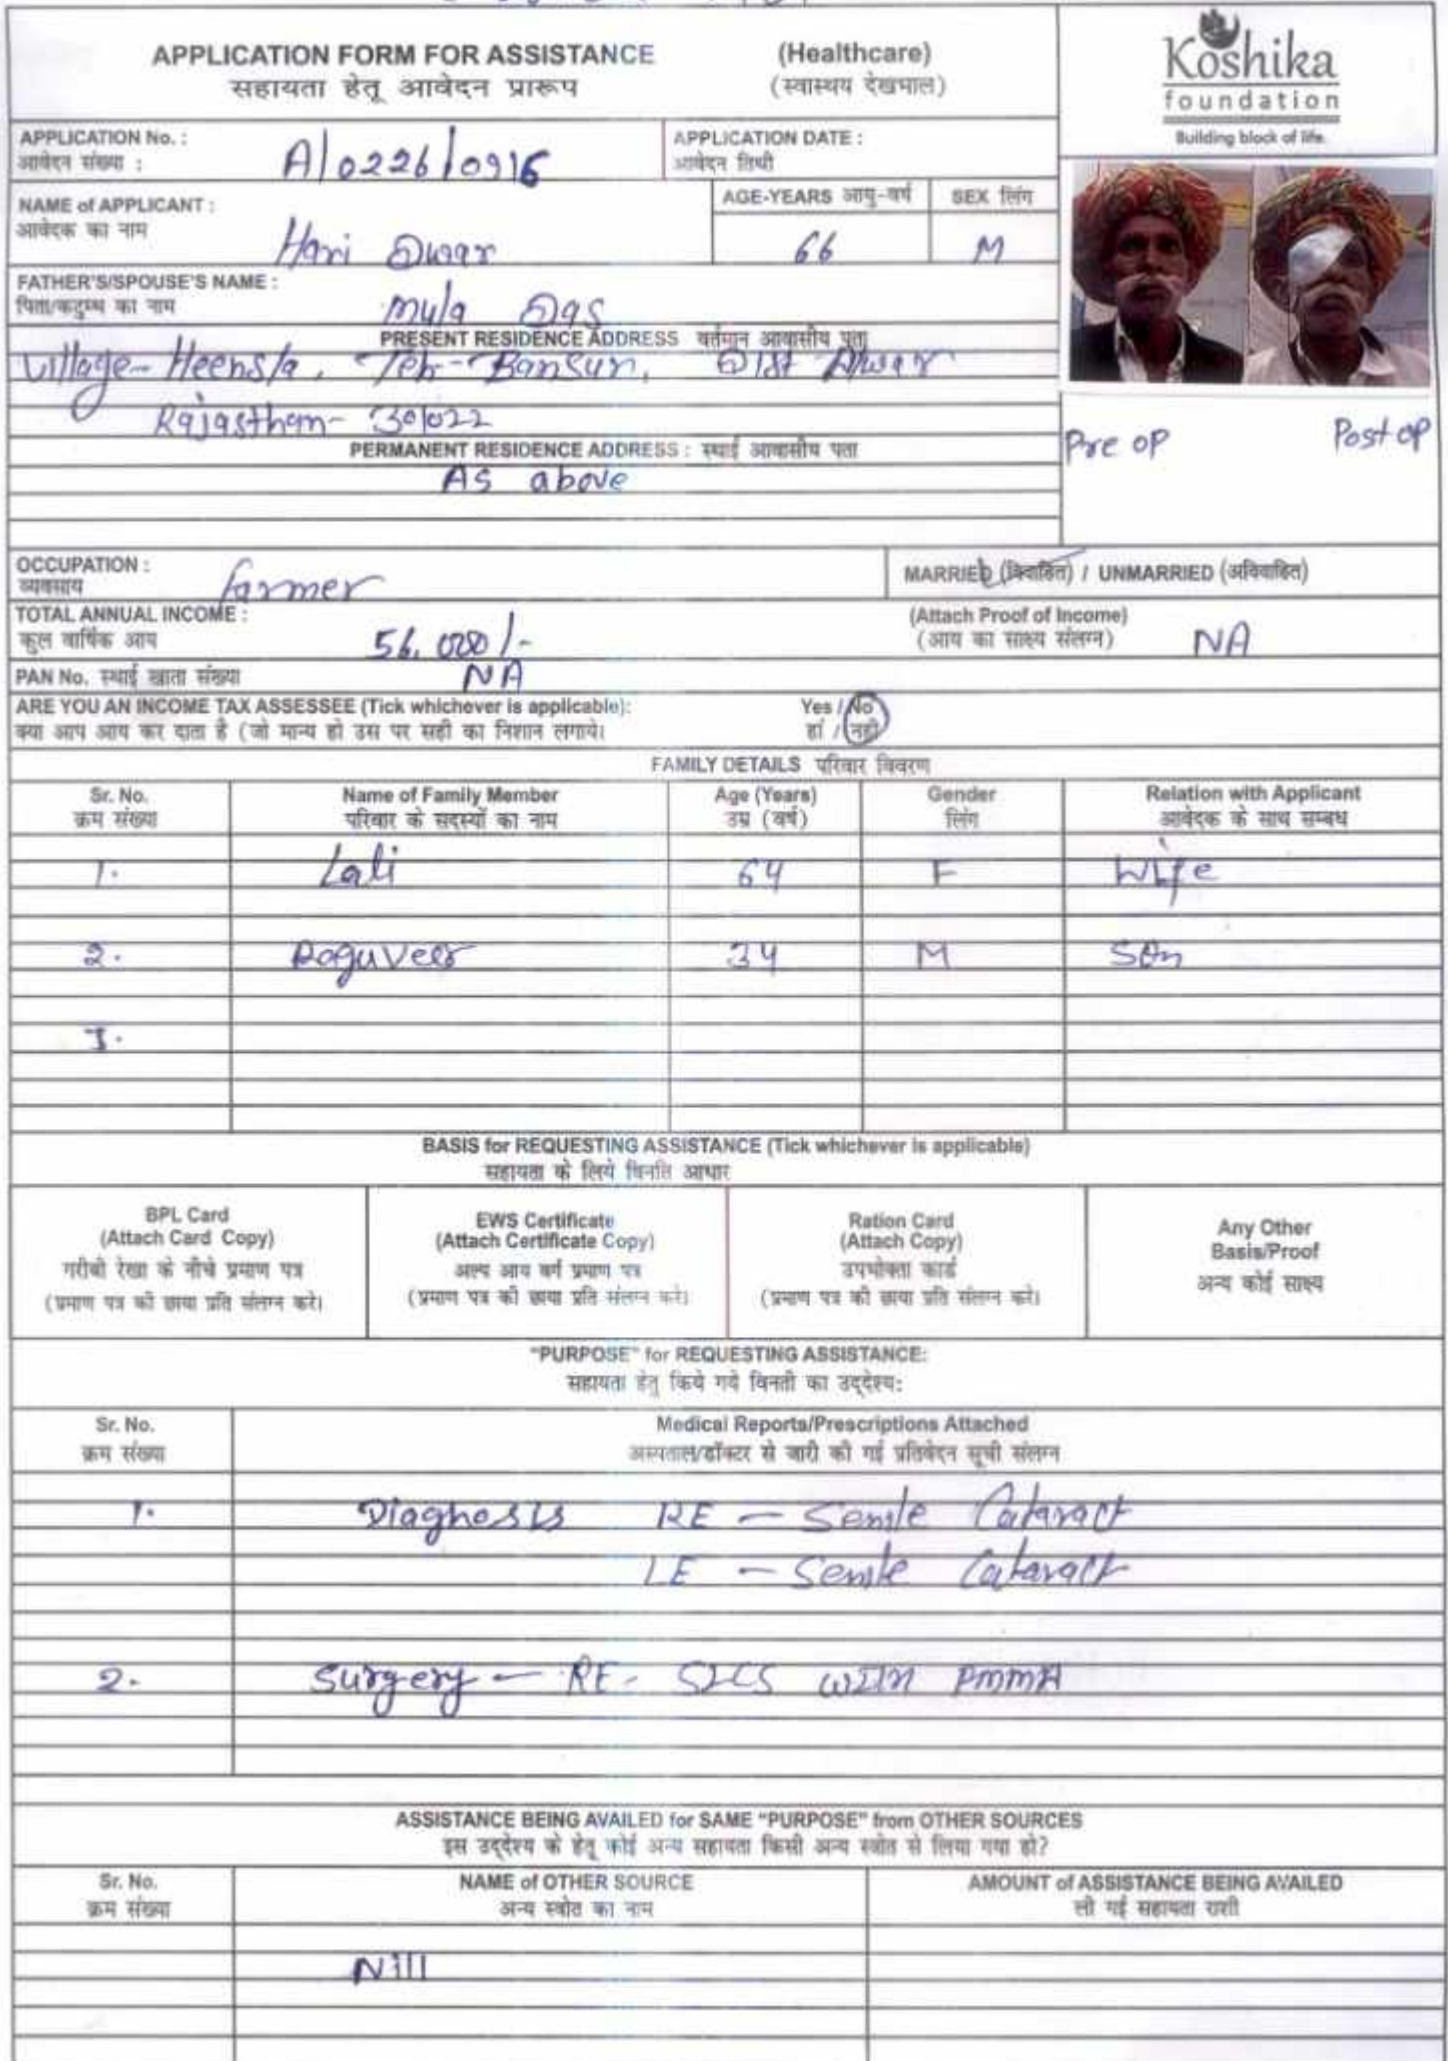 APPLICATION FORM FOR ASSISTANCE (Healthcare)
सहायता हेतू आवेदन प्रारूप (स्वास्थय देखभाल)
Koshika
foundation
Building block of life.
APPLICATION No. : A/0226/0916 APPLICATION DATE :
आवेदन संख्या : आवेदन तिथी
NAME of APPLICANT : AGE-YEARS आयु-वर्ष SEX लिंग
आवेदक का नाम Hari 66 M
FATHER'S/SPOUSE'S NAME :
पिता/कटुम्ब का नाम Mula Das
PRESENT RESIDENCE ADDRESS वर्तमान आवासीय पता
Village- Heensla, Teh- Bansur, Dist Alwar
Rajasthan- 301022
Pre op Post op
PERMANENT RESIDENCE ADDRESS : स्थाई आवासीय पता
As above
OCCUPATION : MARRIED (विवाहित) / UNMARRIED (अविवाहित)
व्यवसाय farmer
TOTAL ANNUAL INCOME : (Attach Proof of Income)
कुल वार्षिक आय 56,000/- (आय का साक्ष्य संलग्न) NA
PAN No. स्थाई खाता संख्या NA
ARE YOU AN INCOME TAX ASSESSEE (Tick whichever is applicable): Yes / No
क्या आप आय कर दाता है (जो मान्य हो उस पर सही का निशान लगाये। हां / नहीं
FAMILY DETAILS परिवार विवरण
Sr. No. Name of Family Member Age (Years) Gender Relation with Applicant
क्रम संख्या परिवार के सदस्यों का नाम उम्र (वर्ष) लिंग आवेदक के साथ सम्बध
1. Lali 64 F Wife
2. Raguveer 34 M Son
3.
BASIS for REQUESTING ASSISTANCE (Tick whichever is applicable)
सहायता के लिये विनति आधार
BPL Card
(Attach Card Copy)
गरीबी रेखा के नीचे प्रमाण पत्र
(प्रमाण पत्र की छाया प्रति संलग्न करे।
EWS Certificate
(Attach Certificate Copy)
अल्प आय वर्ग प्रमाण पत्र
(प्रमाण पत्र की छाया प्रति संलग्न करे।
Ration Card
(Attach Copy)
उपभोक्ता कार्ड
(प्रमाण पत्र की छाया प्रति संलग्न करे।
Any Other
Basis/Proof
अन्य कोई साक्ष्य
"PURPOSE" for REQUESTING ASSISTANCE:
सहायता हेतु किये गये विनती का उद्देश्य:
Sr. No. Medical Reports/Prescriptions Attached
क्रम संख्या अस्पताल/डॉक्टर से जारी की गई प्रतिवेदन सूची संलग्न
1. Diagnosis RE - Senile Cataract
LE - Senile Cataract
2. Surgery - RE- SICS with PMMA
ASSISTANCE BEING AVAILED for SAME "PURPOSE" from OTHER SOURCES
इस उद्देश्य के हेतू कोई अन्य सहायता किसी अन्य स्त्रोत से लिया गया हो?
Sr. No. NAME of OTHER SOURCE AMOUNT of ASSISTANCE BEING AVAILED
क्रम संख्या अन्य स्त्रोत का नाम ली गई सहायता राशी
Nill